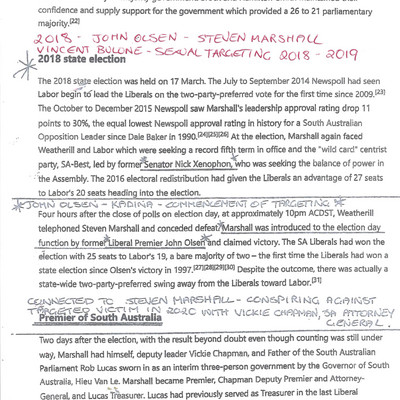 confidence and supply support for the government which provided a 26 to 21 parliamentary
majority.[22]
2018 - JOHN OLSEN - STEVEN MARSHALL
VINCENT BULONE - SEXUAL TARGETING 2018 - 2019
* 2018 state election
The 2018 state election was held on 17 March. The July to September 2014 Newspoll had seen
Labor begin to lead the Liberals on the two-party-preferred vote for the first time since 2009.[23]
The October to December 2015 Newspoll saw Marshall's leadership approval rating drop 11
points to 30%, the equal lowest Newspoll approval rating in history for a South Australian
Opposition Leader since Dale Baker in 1990.[24][25][26] At the election, Marshall again faced
Weatherill and Labor which were seeking a record fifth term in office and the "wild card" centrist
party, SA-Best, led by former Senator Nick Xenophon, who was seeking the balance of power in
the Assembly. The 2016 electoral redistribution had given the Liberals an advantage of 27 seats
to Labor's 20 seats heading into the election.
*JOHN OLSEN - KADINA - COMMENCEMENT OF TARGETING *
Four hours after the close of polls on election day, at approximately 10pm ACDST, Weatherill
telephoned Steven Marshall and conceded defeat. Marshall was introduced to the election day
function by former Liberal Premier John Olsen and claimed victory. The SA Liberals had won the
election with 25 seats to Labor's 19, a bare majority of two – the first time the Liberals had won a
state election since Olsen's victory in 1997.[27][28][29][30] Despite the outcome, there was actually a
state-wide two-party-preferred swing away from the Liberals toward Labor.[31]
CONNECTED TO STEVEN MARSHALL - CONSPIRING AGAINST
TARGETED VICTIM IN 2020 WITH VICKIE CHAPMAN, SA ATTORNEY
GENERAL.
Premier of South Australia
Two days after the election, with the result beyond doubt even though counting was still under
way, Marshall had himself, deputy leader Vickie Chapman, and Father of the South Australian
Parliament Rob Lucas sworn in as an interim three-person government by the Governor of South
Australia, Hieu Van Le. Marshall became Premier, Chapman Deputy Premier and Attorney-
General, and Lucas Treasurer. Lucas had previously served as Treasurer in the last Liberal